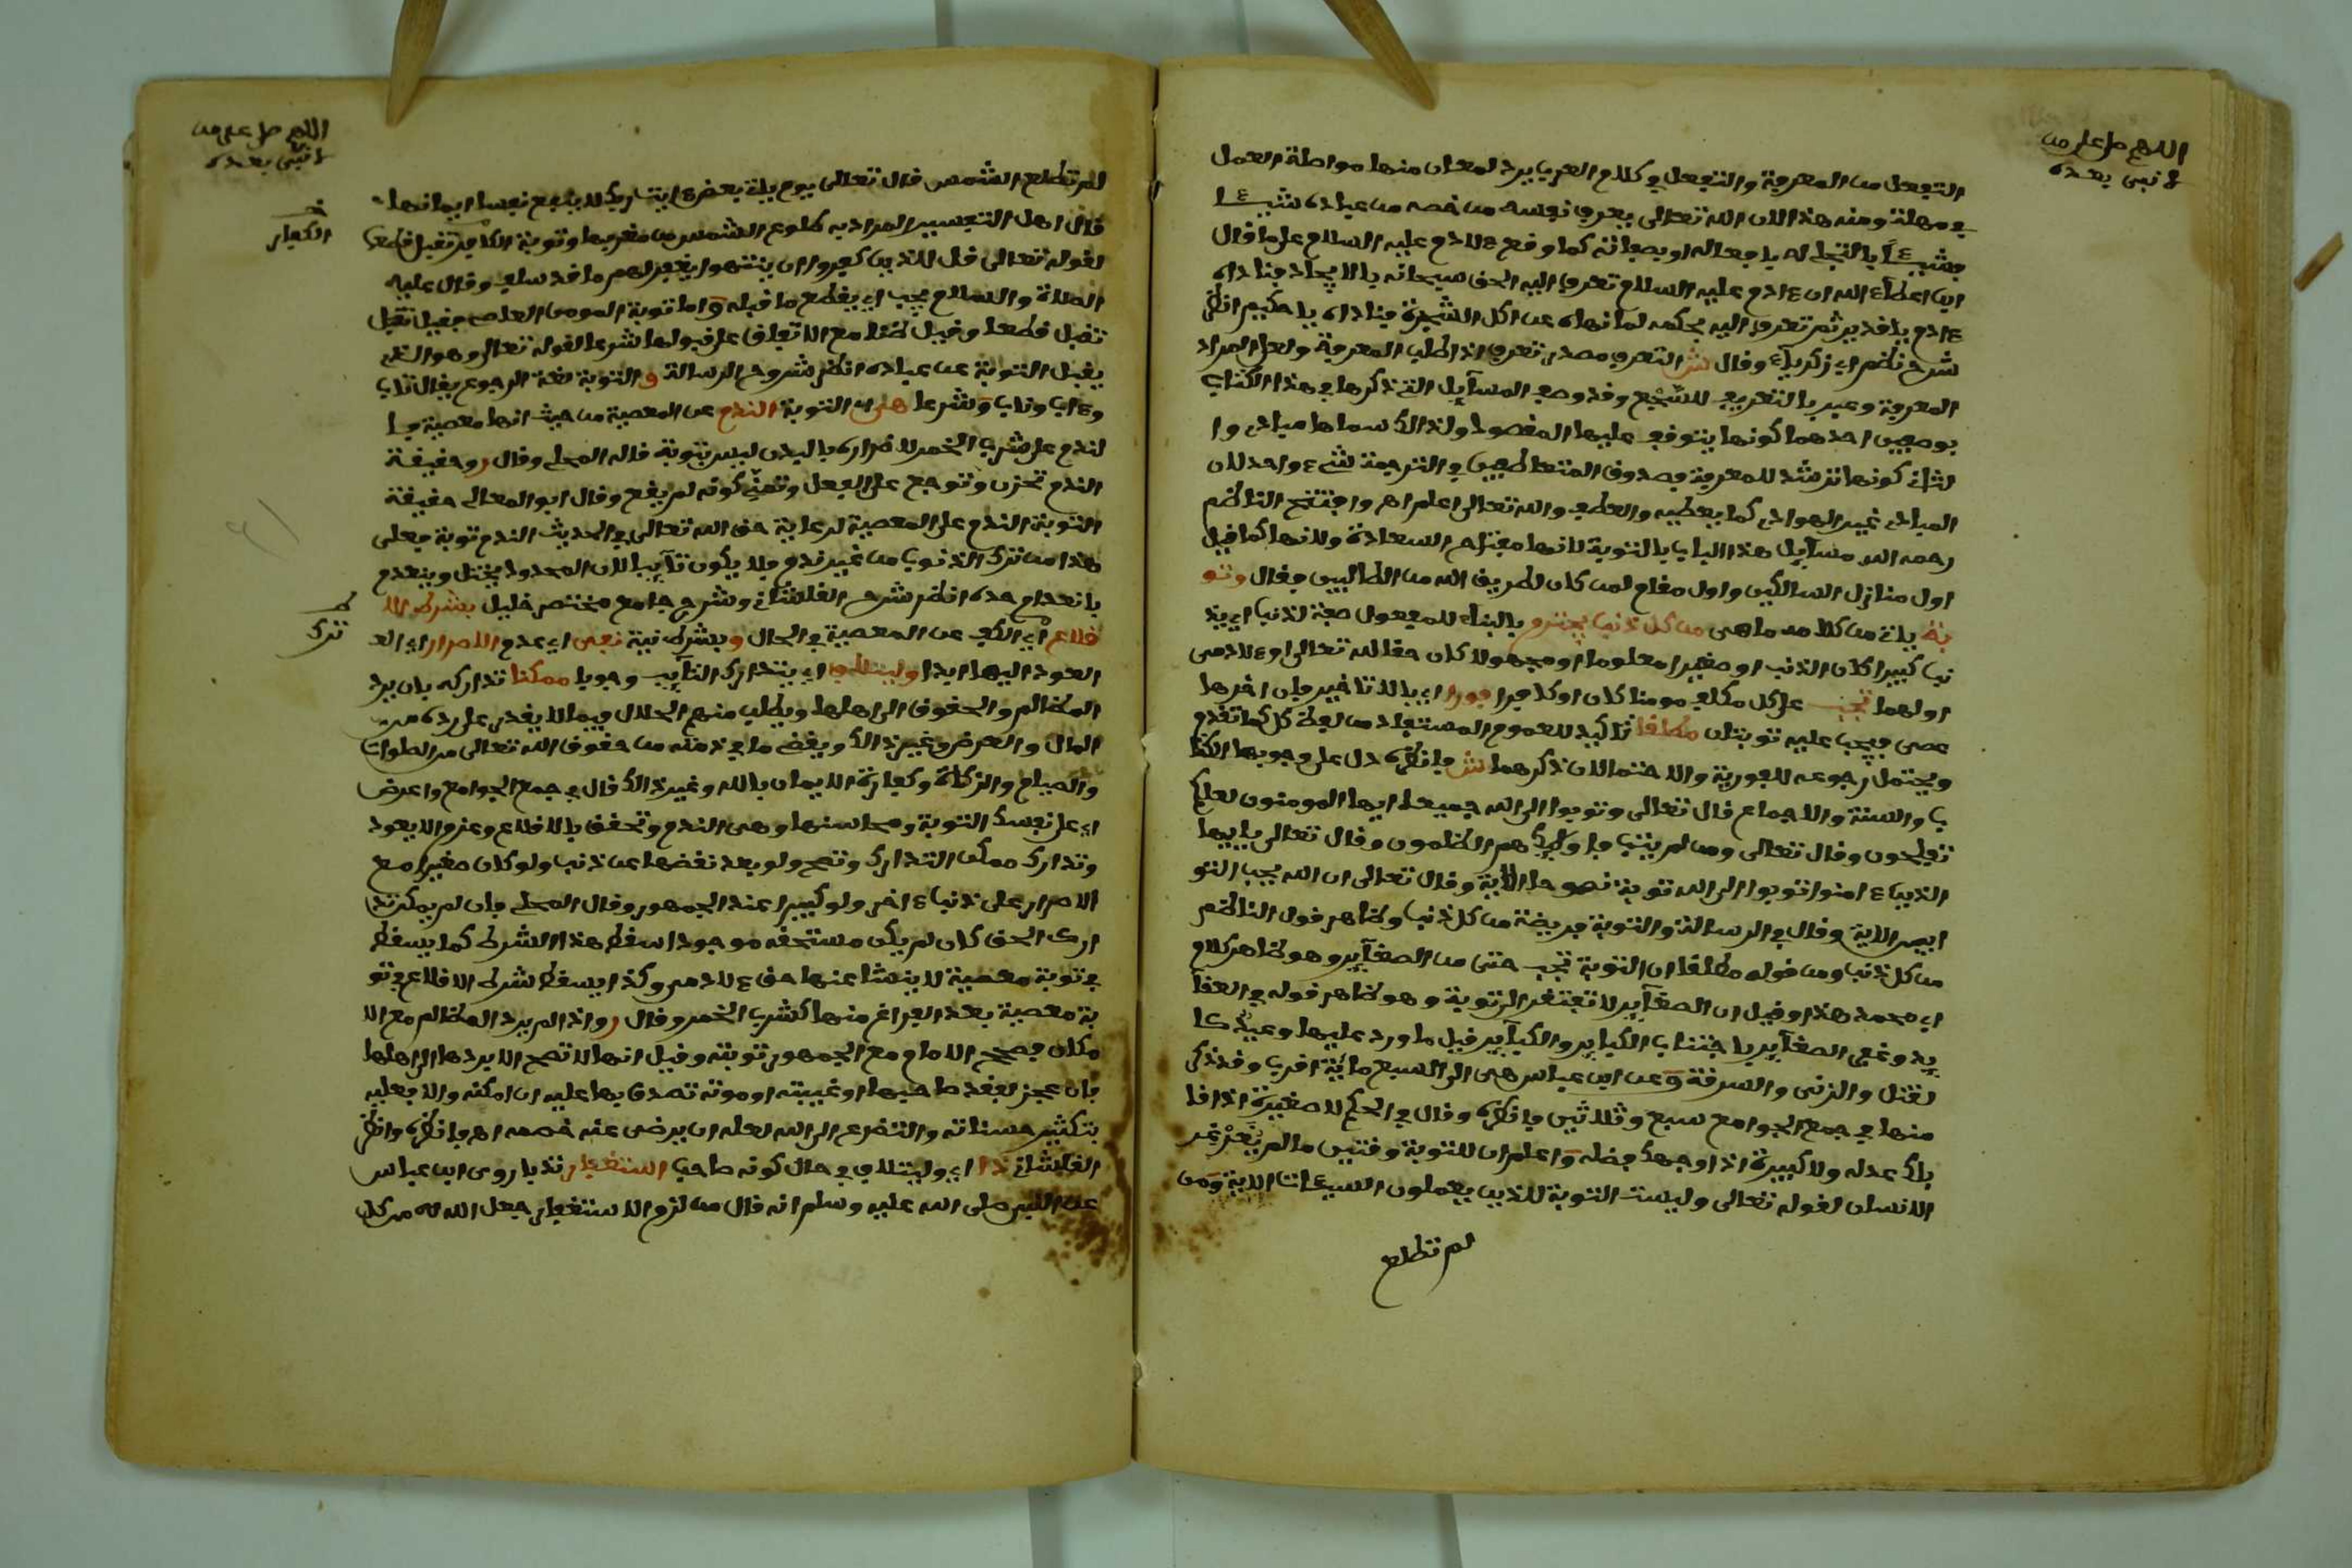 اللهم صل على من
لا نبي بعده
التفعل من المعرفة والتفعل في كلام العرب يرد لمعان منها مواصلة العمل
في مهلة ومنه هذا لان الله تعالى يعرف نفسه من خصه من عباده شيـــٔا
فشيـــٔاً بالتجلي له بافعاله او بصفاته كما وقع ءلادم عليه السلام على ما قال
ابن اعطاء الله ان ءادم عليه السلام تعرف اليه الحق سبحانه بالايجاد فناداه
ءادم يا قدير ثم تعرف اليه بحكمه لما نهاه عن اكل الشجرة فناداه يا حكيم انظر
شرح نظم ابي زكرياء وقال ش التعرف مصدر تعرف اذا طلب المعرفة ولعل المراد
المعرفة وعبر بالتعريف للسّجع وقد وصف المسآيل التي ذكرها في هذا الكتاب
بوصفين احدهما كونها يتوقف عليها المقصود ولذالك سماها مبادئ وا
لثاني كونها ترشد للمعرفة فصدوق المتعاطفين في الترجمة لشيء واحد لان
المبادئ غير الهوادي كما يعطيه والعطف والله تعالى اعلم اهـ وافتتح الناظم
رحمه الله مسآيل هذا الباب بالتوبة لانها مفتاح السعادة ولانها كما قيل
اول منازل السالكين واول مقام لمن كان لطريق الله من الطالبين فقال وتو
بة ياتي من كلامه ما هي من كل ذنب يجترم بالبناء للمفعول صفة لذنب اي يذ
نب كبيرا كان الذنب او صغيرا معلوما او مجهولا كان حقا لله تعالى او ءلادمي
اولهما تجب على كل مكلف مومنا كان او كافرا فورا اي بلا تاخير فان اخرها
عصى فيجب عليه توبتان مطلقا تاكيد للعموم المستفاد من لفظة كل كما تقدم
ويحتمل رجوعه للفورية والاحتمالان ذكرهما ش فانظره دل على وجوبها الكتا
ب والسنة والاجماع قال تعالى وتوبوا الى الله جميعا ايها المومنون لعلكم
تفلحون وقال تعالى ومن لم يتب فاولئك هم الظلمون وقال تعالى يايها
الذين ءامنوا توبوا الى الله توبة نصوحا الاية وقال تعالى ان الله يحب التو
ابين الاية وقال في الرسالة والتوبة فريضة من كل ذنب وظاهر قول الناظم
من كل ذنب ومن قوله مطلقا ان التوبة تجب حتى من الصغآير وهو ظاهر كلام
ابي محمد هذا وقيل ان الصغآير لا تفتقر الى توبة وهو ظاهر قوله في العقآ
يد وغفر الصغآير باجتناب الكبآير والكبآير قيل ما ورد عليها وعيد كا
لقتل والزنى والسرقة وعن ابن عباس هي الى السبع ماية اقرب وقد ذكر
منها في جمع الجوامع سبع وثلاثين فانظره وقال في الحكم لا صغيرة اذا قا
بلك عدله ولا كبيرة اذا وجهك فضله واعلم ان للتوبة وقتين ما لم يُغَرْغِر
الانسان لقوله تعالى وليست التوبة للذين يعملون السيـٔات الاية ومن
لم تطلع
اللهم صل على من
لا نبي بعده
لم تطلع الشمس قال تعالى يوم ياتي بعض ءايت ربك لا ينفع نفسا ايمانها
قال اهل التفسير المراد به طلوع الشمس من مغربها وتوبة الكافر تقبل قطعا
الكفار
لقوله تعالى قل للذين كفروا ان ينتهوا يغفر لهم ما قد سلف وقال عليه
الصلاة والسلام يجب اي يقطع ما قبله واما توبة المومن العاصي فقيل تقبل
تقبل قطعا وقيل ظنا مع الاتفاق على قبولها شرعا لقوله تعالى وهو الذي
يقبل التوبة عن عباده انظر شروح الرسالة والتوبة لغة الرجوع يقال تاب
وءاب وناب وشرعا هي اي التوبة الندم عن المعصية من حيث انها معصية فا
لندم على شرب الخمر لاضراره بالبدن ليس بتوبة قاله المحلي وقال ر وحقيقة
الندم تحزن وتوجع على الفعل وتمني كونه لم يقع وقال ابو المعالي حقيقة
التوبة الندم على المعصية لرعاية حق الله تعالى في الحديث الندم توبة فعلى
هذا من ترك الذنوب من غير ندم فلا يكون تآيبا لان المحدود يختل وينعدم
بانعدام حده انظر شرح القلشاني وشرح جامع مختصر خليل بشرط الا
قلاع اي الكف عن المعصية في الحال وبشرط نية نفي اي عدم الاصرار اي العـ
ترك
العود اليها ابدا وليتلاف اي يتدارك التآيب وجوبا ممكنا تداركه بان يرد
المظالم والحقوق الى اهلها ويطلب منهم الحلال فيما لا يقدر على رده من
المال والعرض وغير ذالك ويقضي ما في ذمته من حقوق الله تعالى من الصلوات
والصيام والزكاة وكفارة الايمان بالله وغير ذالك قال في جمع الجوامع واعرض
اي على نفسك التوبة ومحاسنها وهي الندم وتحقق بالاقلاع وعزم الا يعود
وتدارك ممكن التدارك وتصح ولو بعد نقضها عن ذنب ولو كان صغيرا مع
الاصرار على ذنب ءاخر ولو كبيرا عند الجمهور وقال المحلي فان لم يمكن تد
ارك الحق كان لم يكن مستحقه موجودا سقط هذا الشرط كما يسقط
في توبة معصية لا ينشا عنها حق ءلادمي وكذا يسقط شرط الاقلاع في تو
بة معصية بعد الفراغ منها كشرب الخمر وقال ر واذا لم يرد المظالم مع الا
مكان فصحح الامام مع الجمهور توبته وقيل انها لا تصح الا بردها الى اهلها
فان عجز لفقد صاحبها او غيبته او موته تصدق بها عليه ان امكنه والا فعليه
بتكثير حسناته والتضرع الى الله لعله ان يرضى عنه خصمه اهـ فانظره وانظر
القلشاني ذا اي وليتلاف في حال كونه صاحب استغفار ندبا روى ابن عباس
عن النبي صلى الله عليه وسلم انه قال من لزم الاستغفار جعل الله له من كل